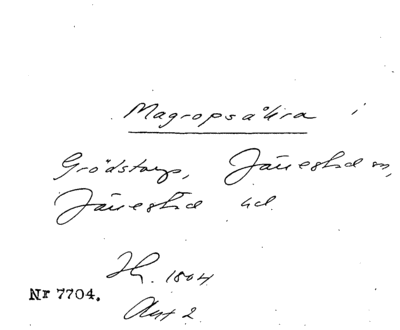 Magropsåkra i
Grödstorp, Järrestad sn,
Järrestad hd
Hs. 1804
Nr 7704.
Akt 2